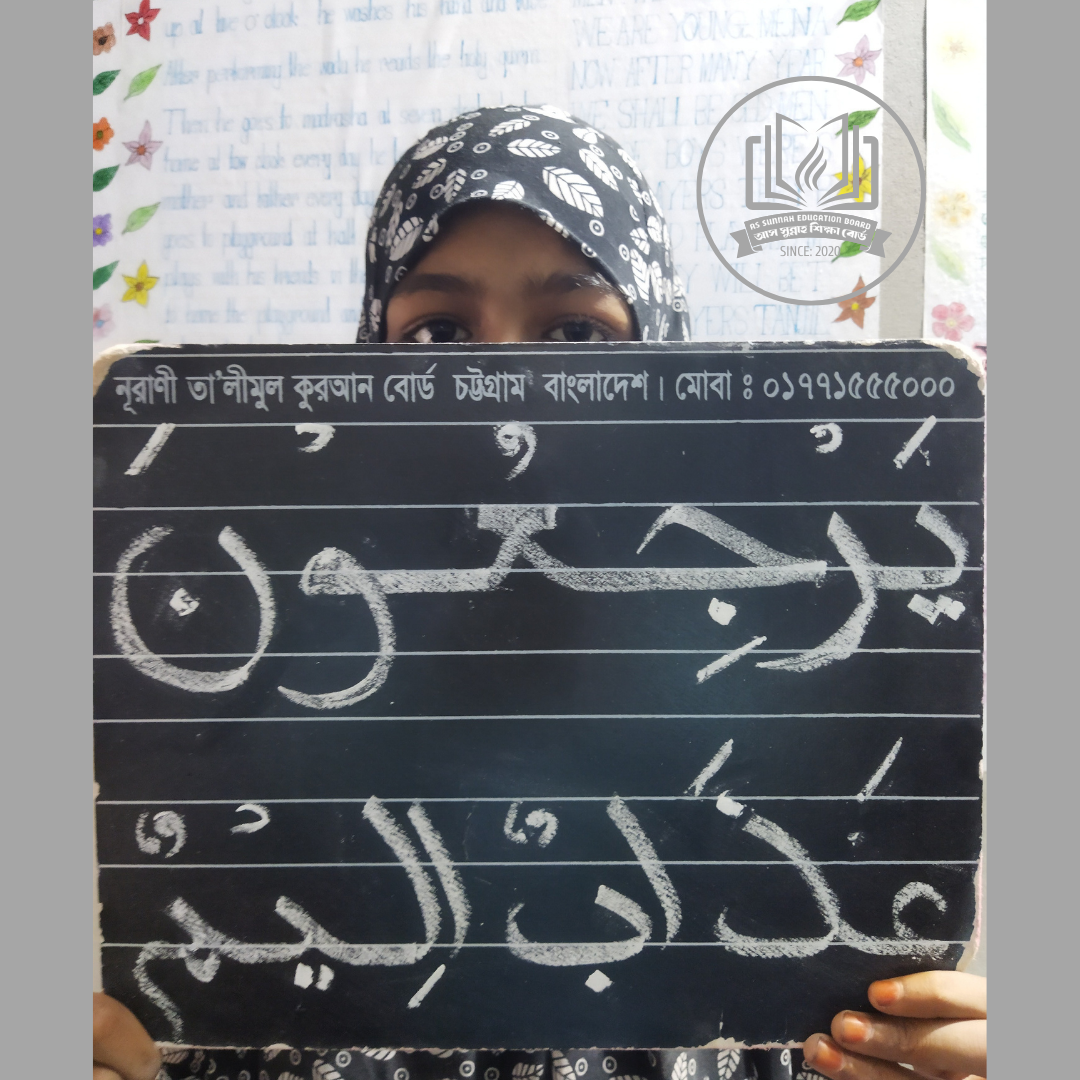 up at five o'clock he washes his hand and
After performing the he reads the holy quran
Then he goes to madrasha at seven
home at
mother and father every day
goes to playground at
plays with his friends
to home the playground
WE ARE YOUNGE
NOW AFTER MANY YEAR
WE SHALL BE
AS SUNNAH EDUCATION BOARD
আস সুন্নাহ শিক্ষা বোর্ড
SINCE: 2020
নূরাণী তা'লীমুল কুরআন বোর্ড চট্টগ্রাম বাংলাদেশ। মোবা : ০১৭৭১৫৫৫০০০
يَرْجِعُوْنَ
عَذَابٌ اَلِيْمٌ